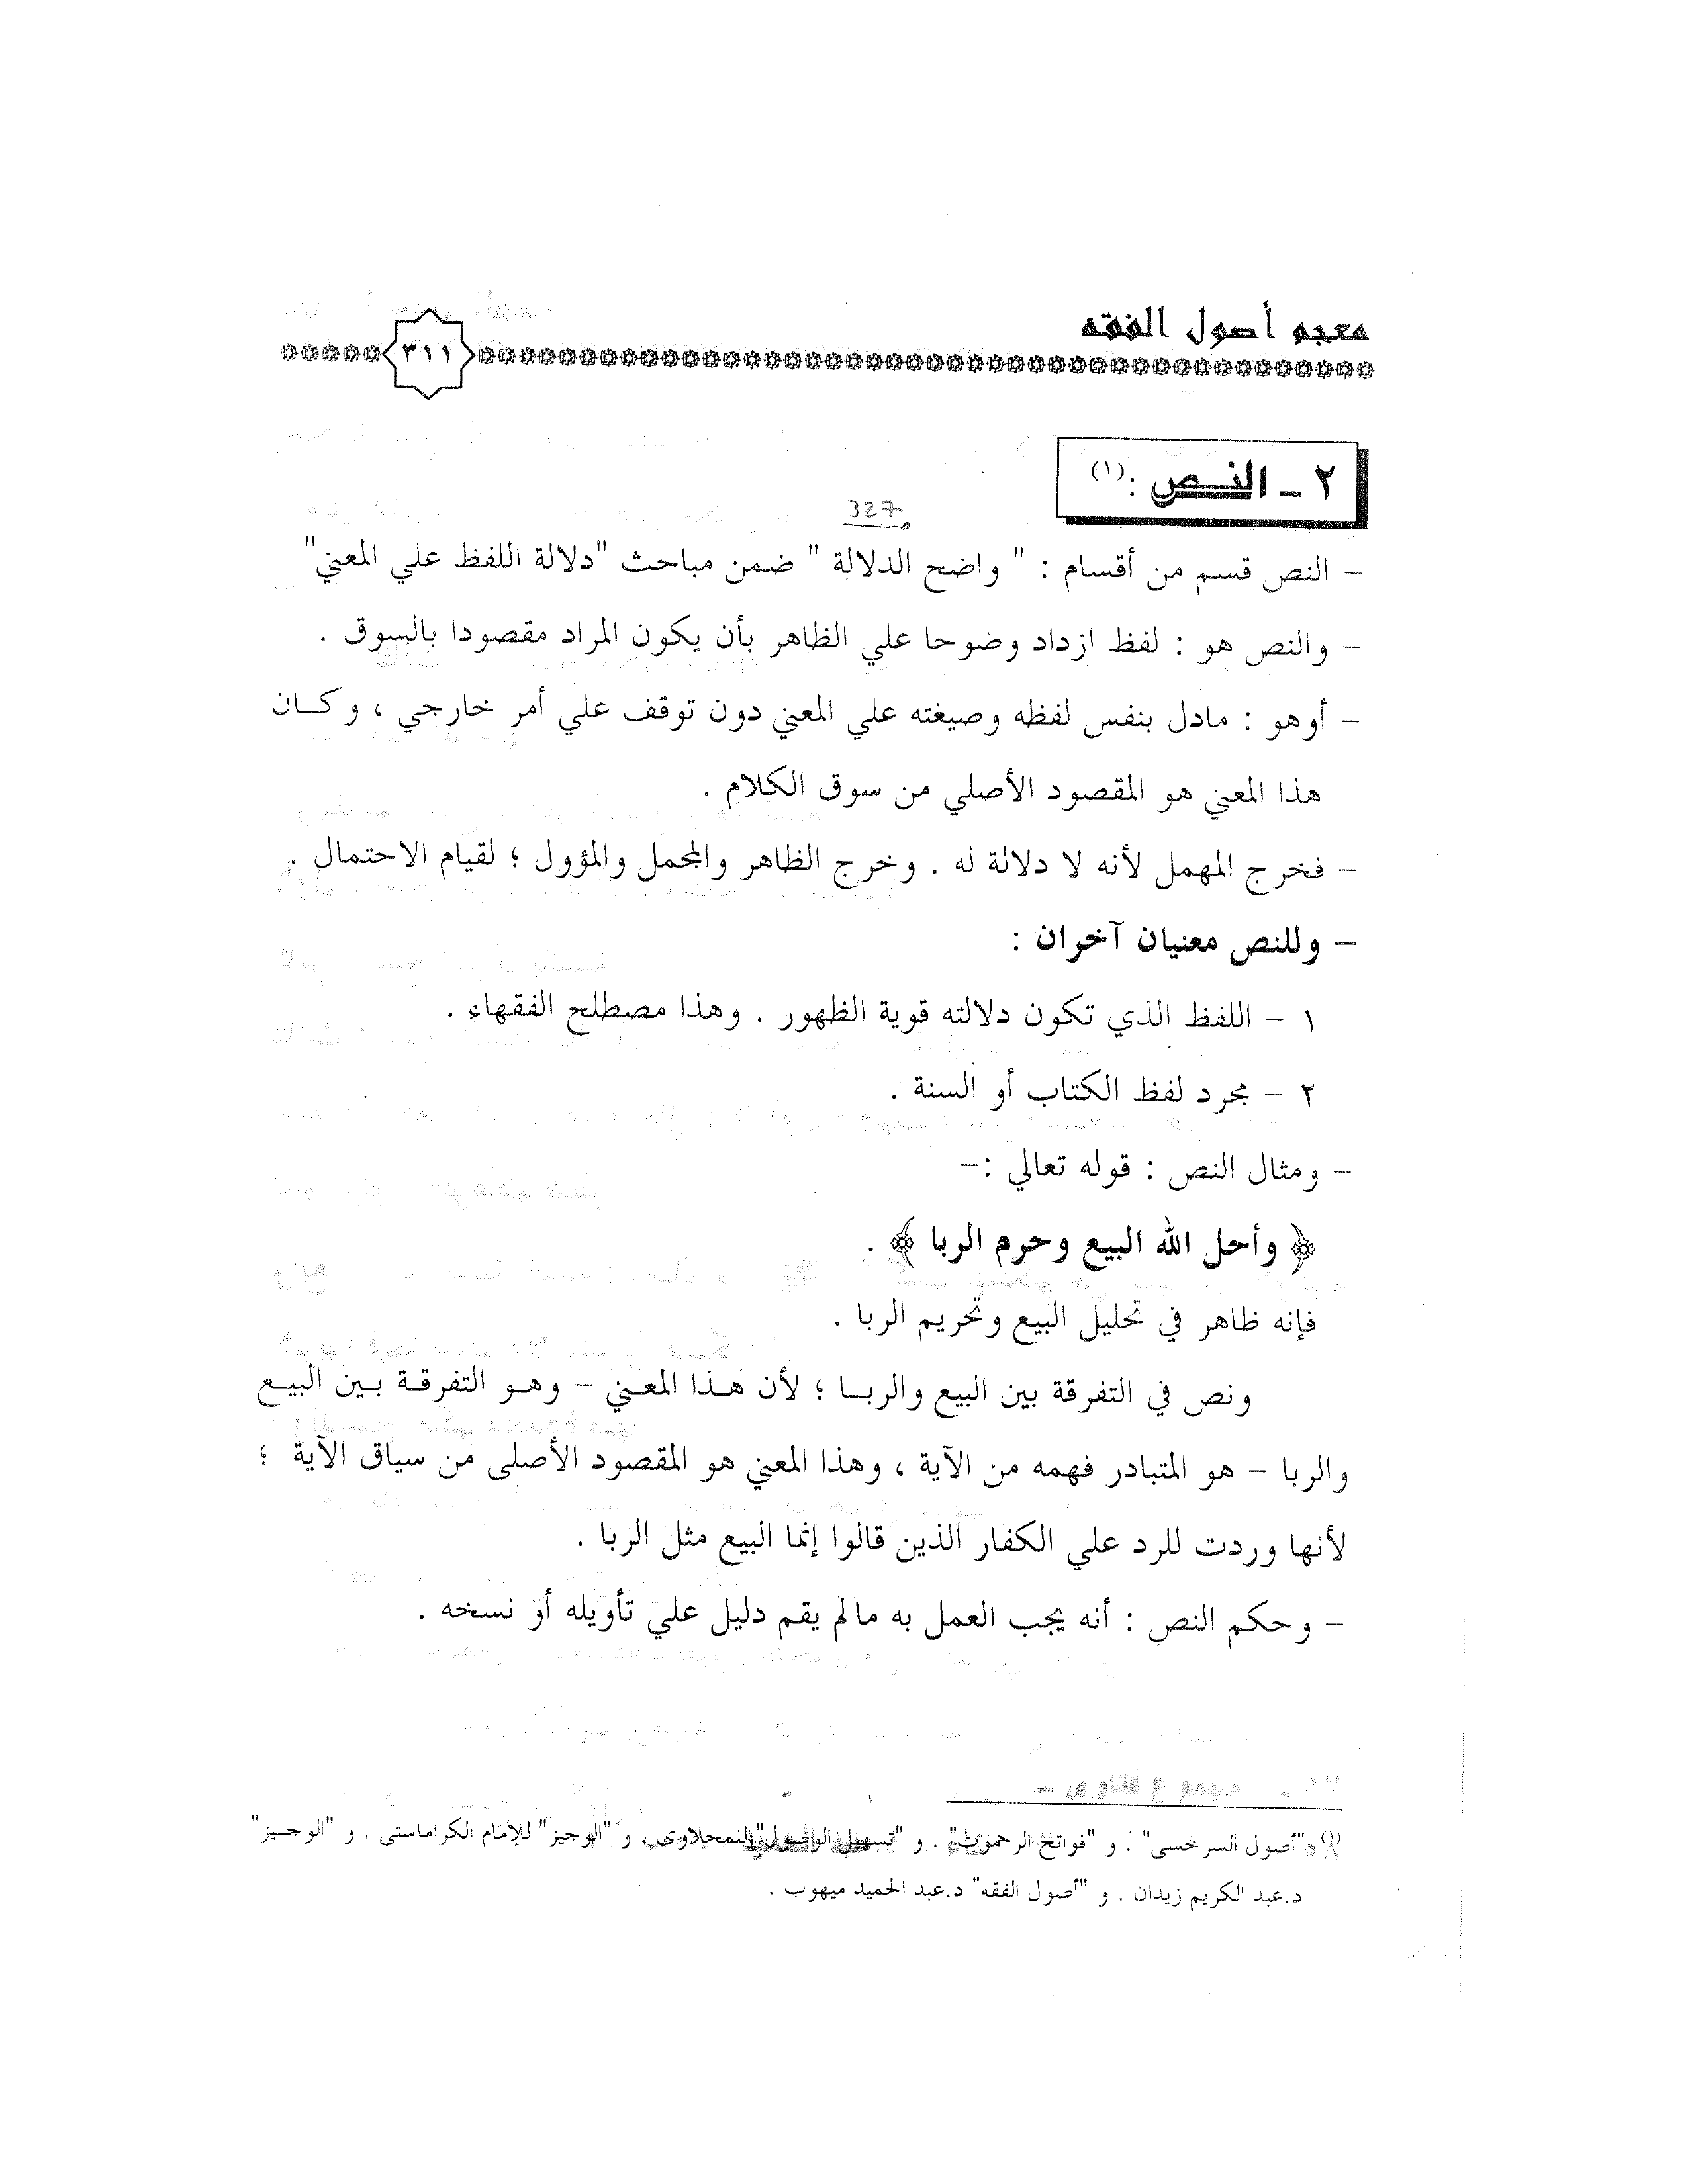 معجم أصول الفقه
٣١١
٢ ـ النـص : (١)
327
– النص قسم من أقسام : " واضح الدلالة " ضمن مباحث "دلالة اللفظ علي المعني"
– والنص هو : لفظ ازداد وضوحا علي الظاهر بأن يكون المراد مقصودا بالسوق .
– أوهو : مادل بنفس لفظه وصيغته علي المعني دون توقف علي أمر خارجي ، وكـان
هذا المعني هو المقصود الأصلي من سوق الكلام .
– فخرج المهمل لأنه لا دلالة له . وخرج الظاهر والمجمل والمؤول ؛ لقيام الاحتمال .
– وللنص معنيان آخران :
١ – اللفظ الذي تكون دلالته قوية الظهور . وهذا مصطلح الفقهاء .
٢ – مجرد لفظ الكتاب أو السنة .
– ومثال النص : قوله تعالي :–
﴿ وأحل الله البيع وحرم الربا ﴾ .
فإنه ظاهر في تحليل البيع وتحريم الربا .
ونص في التفرقة بين البيع والربـا ؛ لأن هـذا المعـني – وهـو التفرقـة بـين البيـع
والربا – هو المتبادر فهمه من الآية ، وهذا المعني هو المقصود الأصلى من سياق الآية ؛
لأنها وردت للرد علي الكفار الذين قالوا إنما البيع مثل الربا .
– وحكم النص : أنه يجب العمل به مالم يقم دليل علي تأويله أو نسخه .
(١) "أصول السرخسى" . و "فواتح الرحموت" . و "تسهيل الوصول" للمحلاوى . و "الوجيز" للإمام الكراماستى . و "الوجـيز"
د.عبد الكريم زيدان . و "أصول الفقه" د.عبد الحميد ميهوب .